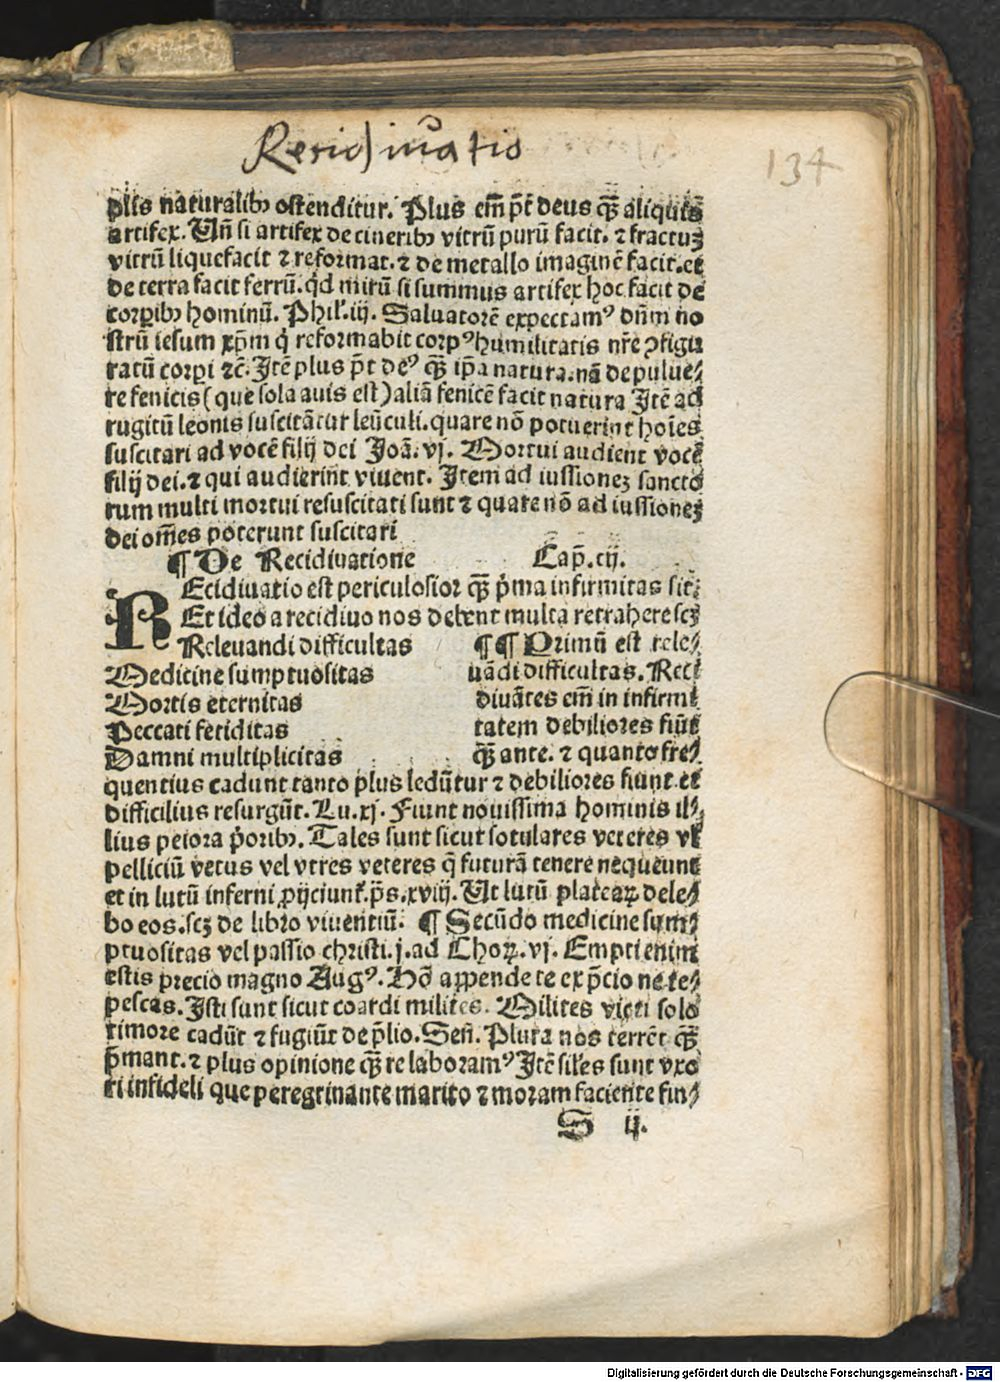 Recidiuatio
134
plis naturalibꝫ ostenditur. Plus em̄ pōt deus qꝫ̄ aliquis
artifex. Un̄ si artifex de cineribꝫ vitrū purū facit. ⁊ fractuꝫ
vitrū liquefacit ⁊ reformat. ⁊ de metallo imaginē facit. et
de terra facit ferrū. qd mirū si summus artifex hoc facit de
corpibꝫ hominū. Phil'. iij. Saluatorē expectam⁹ dn̄m no
strū iesum xp̄m q̇ reformabit corp⁹ humilitatis nr̄e ꝯfigu
ratū corpi ⁊c̄. Itē plus pōt de⁹ qꝫ̄ ip̄a natura. nā de pulue⸗
re fenicis (que sola auis est) aliā fenicē facit natura Itē ad
rugitū leonis suscitātur leūculi. quare nō potuerint hoīes
suscitari ad vocē filij dei Joā. vj. Mortui audient vocē
filij dei. ⁊ qui audierin̄t viuent. Item ad iussioneꝫ sancto
rum multi mortui resuscitati sunt ⁊ quare nō ad iussioneꝫ
dei om̄es poterunt suscitari
¶ De Recidiuatione Cap̄. cij.
REcidiuatio est periculosior qꝫ̄ p̄ma infirmitas sit:
Et ideo a recidiuo nos debent multa retrahere scꝫ
Releuandi difficultas
Medicine sumptuositas
Mortis eternitas
Peccati fetiditas
Damni multiplicitas
¶¶ Primū est rele⸗
uādi difficultas. Reci
diuātes em̄ in infirmi
tatem debiliores fiūt
qꝫ̄ ante. ⁊ quanto fre⸗
quentius cadunt tanto plus ledūtur ⁊ debiliores fiunt et
difficilius resurgūt. Lu. xj. Fiunt nouissima hominis il⸗
lius peiora p̄oribꝫ. Tales sunt sicut sotulares veteres vl'
pelliciū vetus vel vtres veteres q̄ futurā tenere nequeunt
et in lutū inferni ꝓijciunt̄. p̄s. xviij. Ut lutū plateaꝝ dele⸗
bo eos. scꝫ de libro viuentiū. ¶ Secūdo medicine sum⸗
ptuositas vel passio christi. j. ad Choꝝ. vj. Empti enim
estis precio magno Aug⁹. Hō appende te ex p̄cio ne te⸗
pescas. Isti sunt sicut coardi milites. Milites victi solo
timore cadūt ⁊ fugiūt de p̄lio. Sen̄. Plura nos terrēt qꝫ̄
p̄mant. ⁊ plus opinione qꝫ̄ re laboram⁹ Itē sil'es sunt vxo
ri infideli que peregrinante marito ⁊ moram faciente fin⸗
S ij.
Digitalisierung gefördert durch die Deutsche Forschungsgemeinschaft - DFG